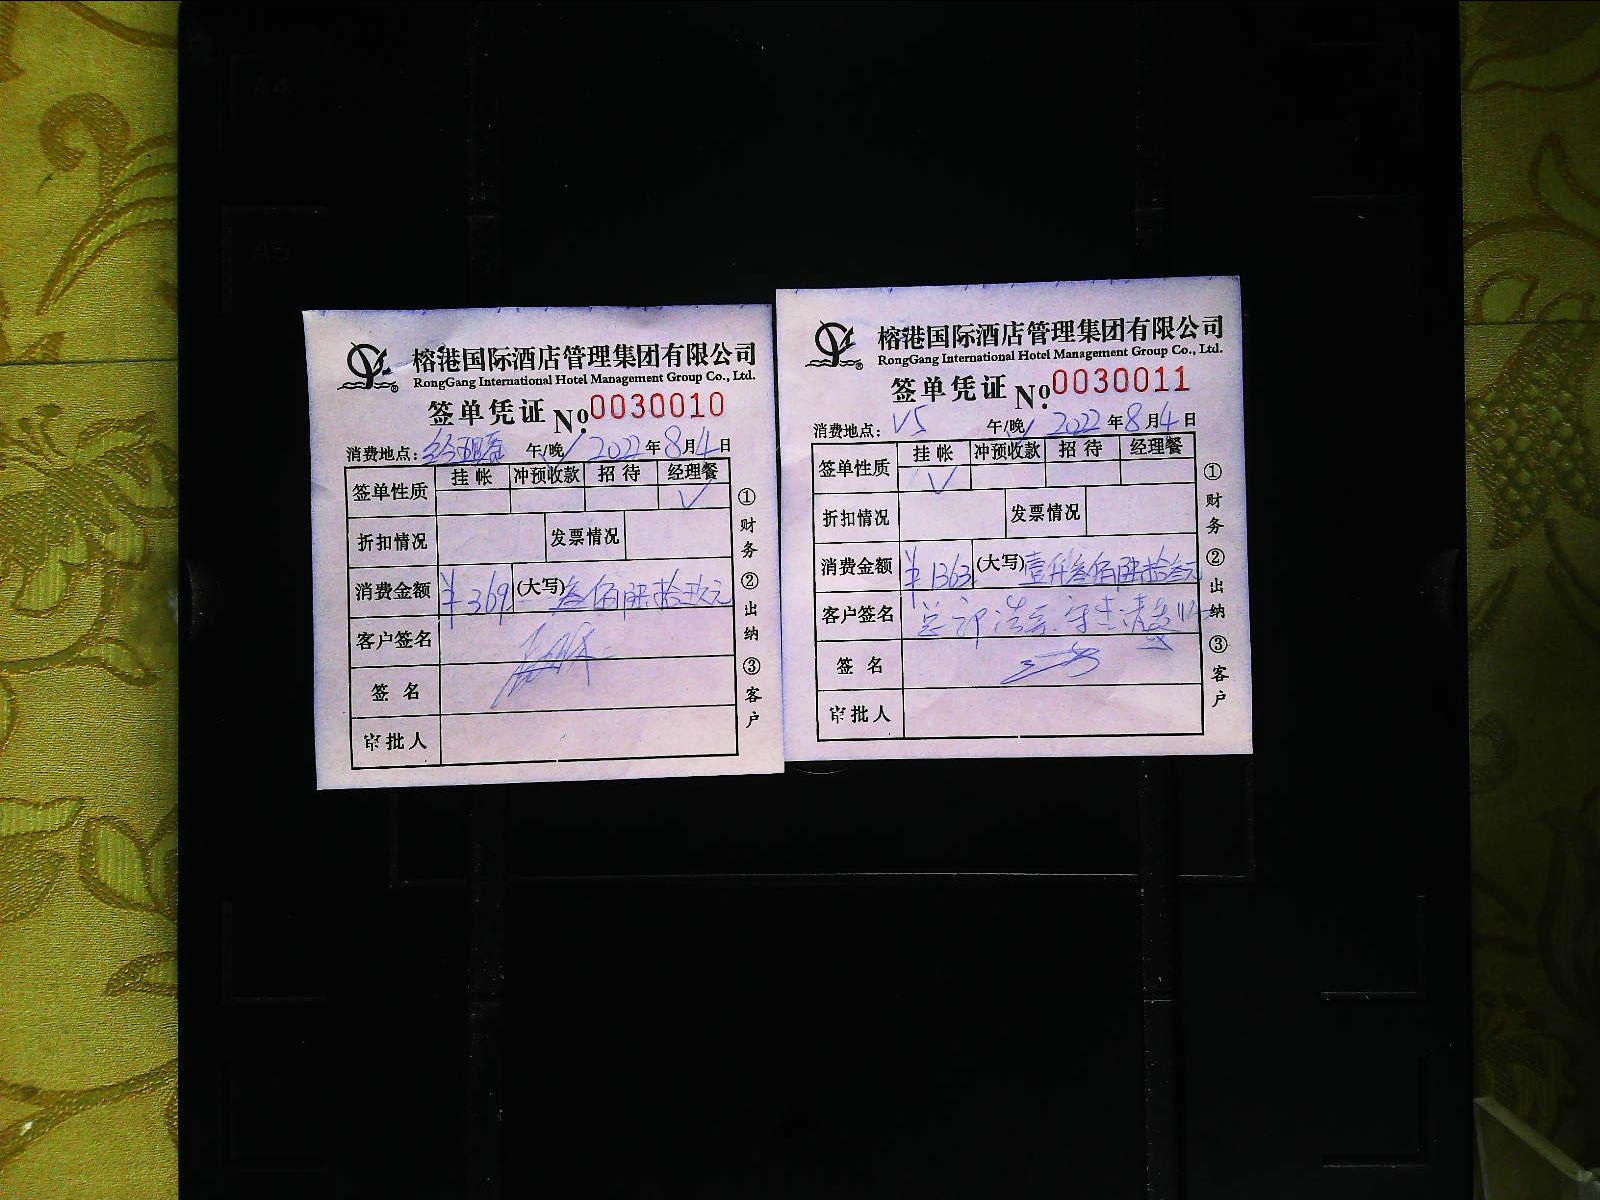 榕港国际酒店管理集团有限公司
RongGang International Hotel Management Group Co., Ltd.
签单凭证 No. 0030010
消费地点: 午/晚 2022 年 8 月 4 日
签单性质 挂帐 冲预收款 招待 经理餐
√
折扣情况 发票情况
消费金额 ¥369 (大写) 叁佰陆拾玖元
客户签名
签名
审批人
①财务 ②出纳 ③客户
榕港国际酒店管理集团有限公司
RongGang International Hotel Management Group Co., Ltd.
签单凭证 No. 0030011
消费地点: V5 午/晚 2022 年 8 月 4 日
签单性质 挂帐 冲预收款 招待 经理餐
√
折扣情况 发票情况
消费金额 ¥1363 (大写) 壹仟叁佰陆拾叁元
客户签名
签名
审批人
①财务 ②出纳 ③客户